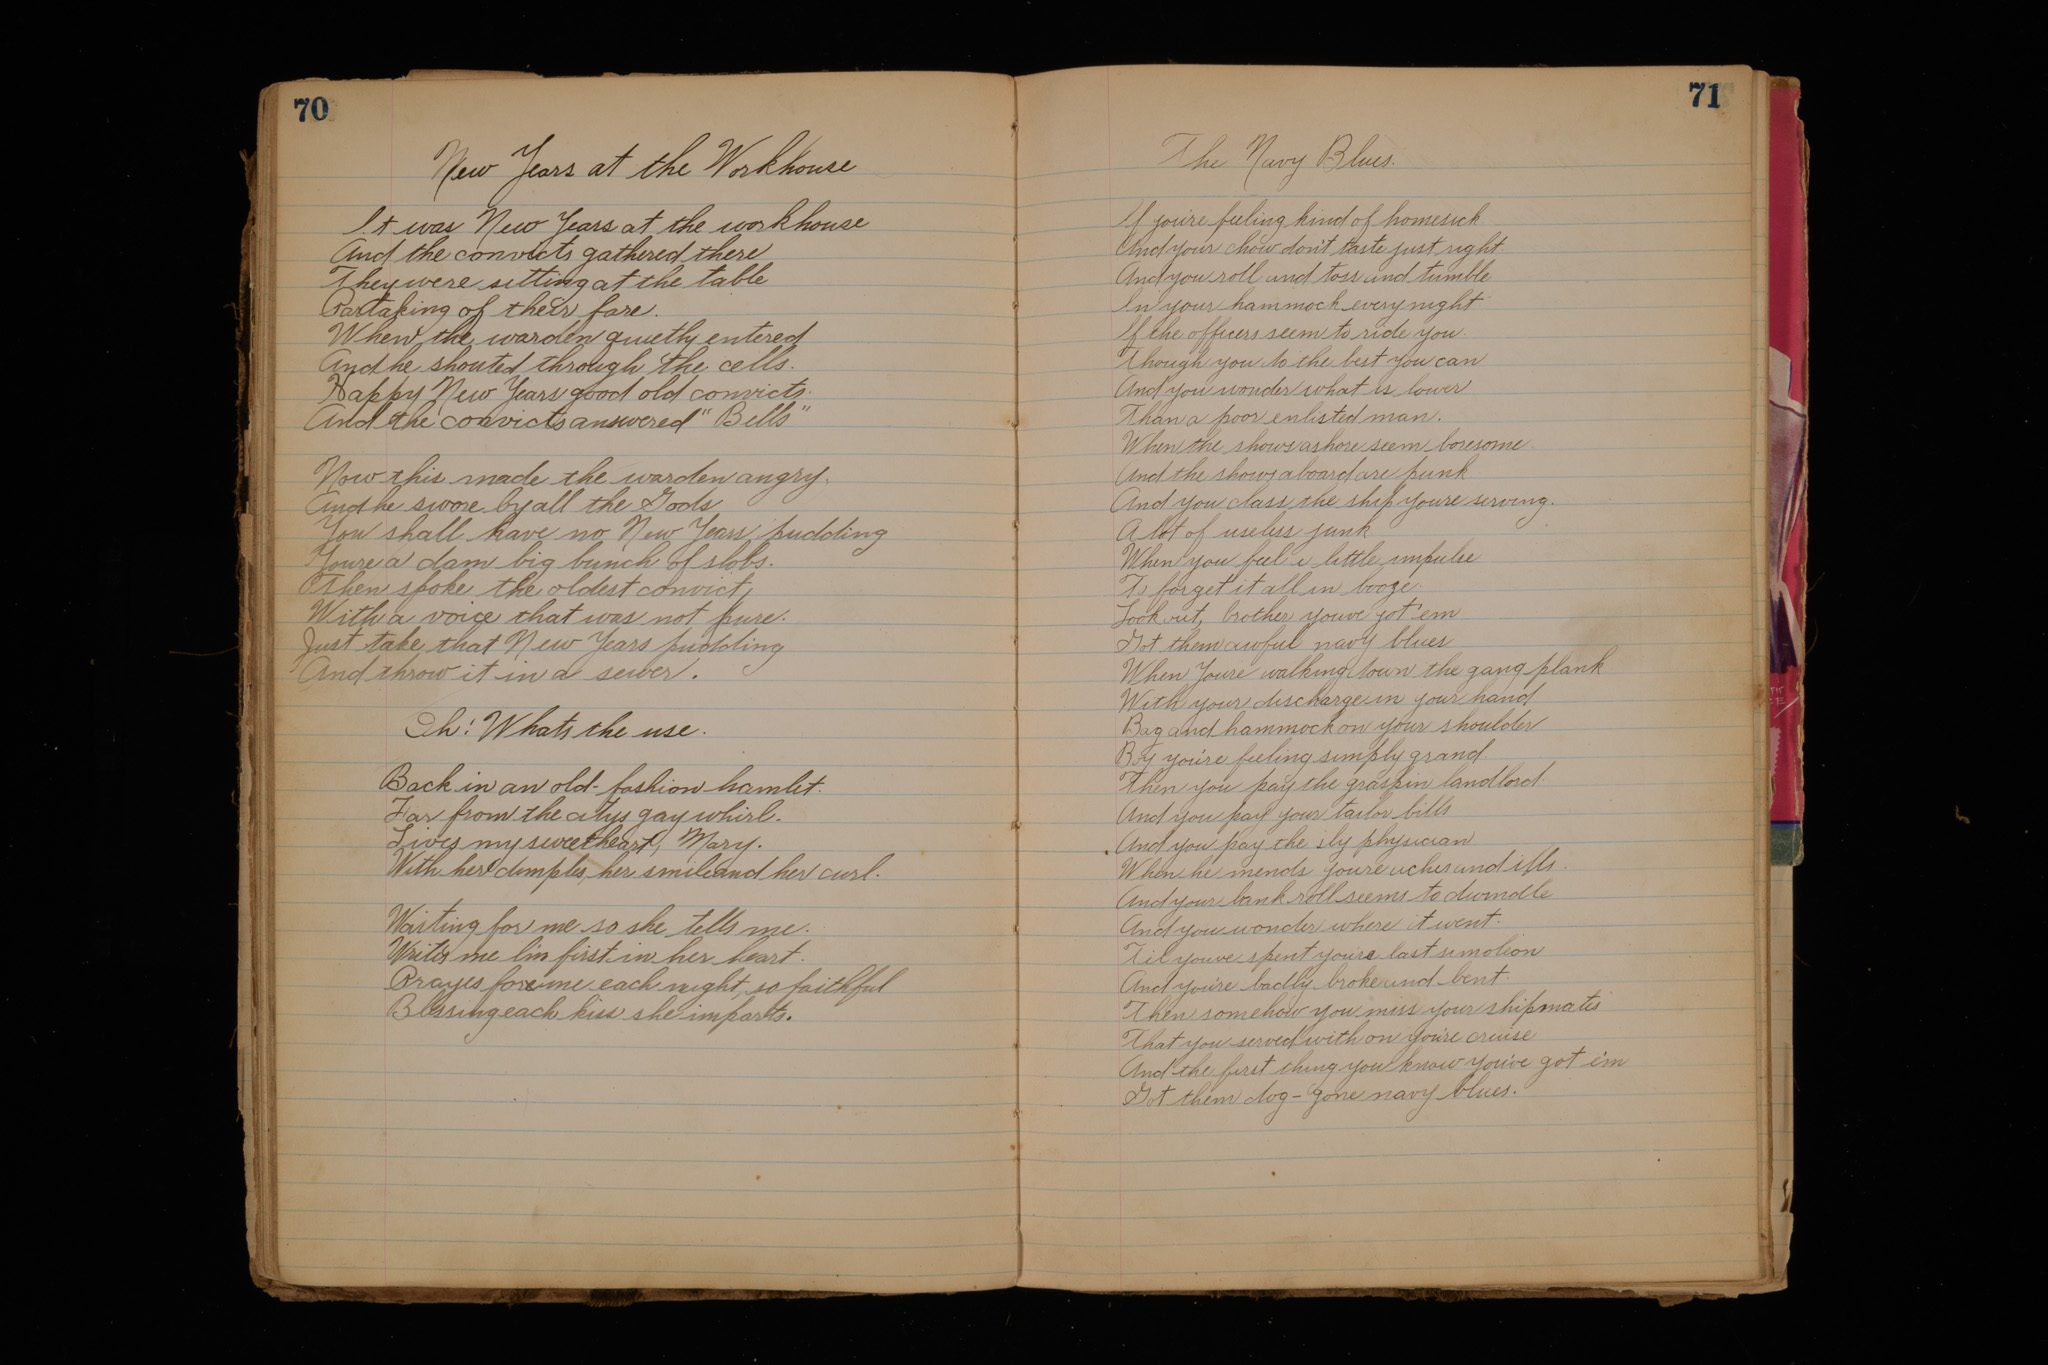 70
New Years at the Workhouse
It was New Years at the workhouse
And the convicts gathered there
They were sitting at the table
Partaking of their fare.
When the warden quietly entered
And he shouted through the cells.
Happy New Years good old convicts.
And the convicts answered "Bells"
Now this made the warden angry.
And he swore by all the Gods
You shall have no New Years pudding
Youre a dam big bunch of slobs.
Then spoke the oldest convict,
With a voice that was not pure.
Just take that New Years pudding
And throw it in a sewer.
Oh! Whats the use.
Back in an old-fashion hamlet.
Far from the citys gay whirl.
Lives my sweetheart, Mary.
With her dimples, her smile and her curl.
Waiting for me so she tells me.
Writes me I'm first in her heart.
Prayes for me each night, so faithful
Blessing each kiss she imparts.
71
The Navy Blues.
If you're feeling kind of homesick
And your chow don't taste just right
And you roll and toss and tumble
In your hammock every night
If the officers seem to ride you.
Though you do the best you can
And you wonder what is lower
Than a poor enlisted man.
When the shows ashore seem boresome.
And the shows aboard are punk
And you class the ship youre serving.
A lot of useless junk
When you feel a little impulse
To forget it all in booze.
Look out, brother youve got 'em
Got them awful navy blues
When Youre walking down the gang plank
With your discharge in your hand
Bag and hammock on your shoulder
Boy you're feeling simply grand.
Then you pay the graspin landlord.
And you pay your tailor bills
And you pay the sly physician
When he mends youre aches and ills.
And your bank roll seems to dwindle
And you wonder where it went.
Til youve spent youre last simoleon
And you're badly broke and bent.
Then somehow you miss your shipmates
That you served with on you're cruise
And the first thing you know you've got 'em
Got them dog-gone navy blues.